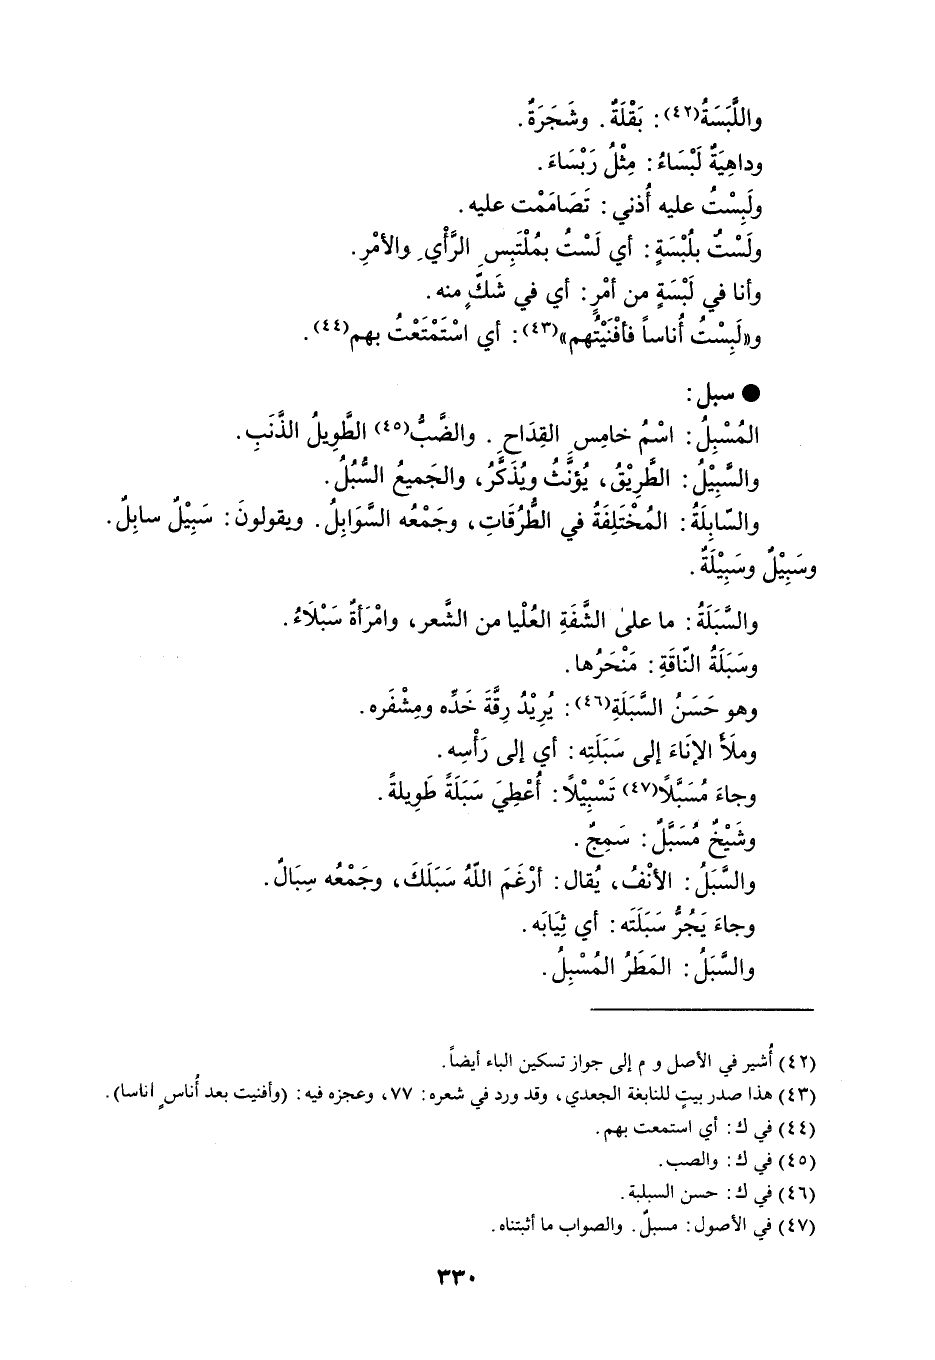 واللَّبَسَةُ(٤٢): بَقْلَةٌ. وشَجَرَةٌ.
وداهِيَةٌ لَبْسَاءُ: مِثْلُ رَبْسَاءَ.
ولَبِسْتُ عليه أُذني: تَصَامَمْت عليه.
ولَسْتُ بلُبْسَةٍ: أي لَسْتُ بمُلْتَبِسِ الرَّأْيِ والأمْرِ.
وأنا في لَبْسَةٍ من أمْرٍ: أي في شَكٍّ منه.
و«لَبِسْتُ أُناساً فأفْنَيْتُهم»(٤٣): أي اسْتَمْتَعْتُ بهم(٤٤).
● سبل:
المُسْبِلُ: اسْمُ خامِسِ القِدَاحِ. والضَّبُّ(٤٥) الطَّوِيلُ الذَّنَبِ.
والسَّبِيْلُ: الطَّرِيْقُ، يُؤنَّثُ ويُذَكَّرُ، والجَميعُ السُّبُلُ.
والسّابِلَةُ: المُخْتَلِفَةُ في الطُّرُقَاتِ، وجَمْعُه السَّوَابِلُ. ويقولونَ: سَبِيْلٌ سابِلٌ.
وسَبِيْلٌ وسَبِيْلَةٌ.
والسَّبَلَةُ: ما علىٰ الشَّفَةِ العُلْيا من الشَّعر، وامْرَأةٌ سَبْلَاءُ.
وسَبَلَةُ النّاقَةِ: مَنْحَرُها.
وهو حَسَنُ السَّبَلَةِ(٤٦): يُرِيْدُ رِقَّةَ خَدِّه ومِشْفَره.
وملَأَ الإنَاءَ إلى سَبَلَتِه: أي إلى رَأْسِه.
وجاءَ مُسَبَّلًا(٤٧) تَسْبِيْلًا: أُعْطِيَ سَبَلَةً طَوِيلةً.
وشَيْخٌ مُسَبَّلٌ: سَمِجٌ.
والسَّبَلُ: الأنْفُ، يُقال: أرْغَمَ اللّهُ سَبَلَكَ، وجَمْعُه سِبَالٌ.
وجاءَ يَجُرُّ سَبَلَتَه: أي ثِيَابَه.
والسَّبَلُ: المَطَرُ المُسْبِلُ.
(٤٢) أُشير في الأصل و م إلى جواز تسكين الباء أيضاً.
(٤٣) هذا صدر بيتٍ للنابغة الجعدي، وقد ورد في شعره: ٧٧، وعجزه فيه: (وأفنيت بعد أُناسٍ اناسا).
(٤٤) في ك: أي استمعت بهم.
(٤٥) في ك: والصب.
(٤٦) في ك: حسن السبلبة.
(٤٧) في الأصول: مسبلّ. والصواب ما أثبتناه.
٣٣٠